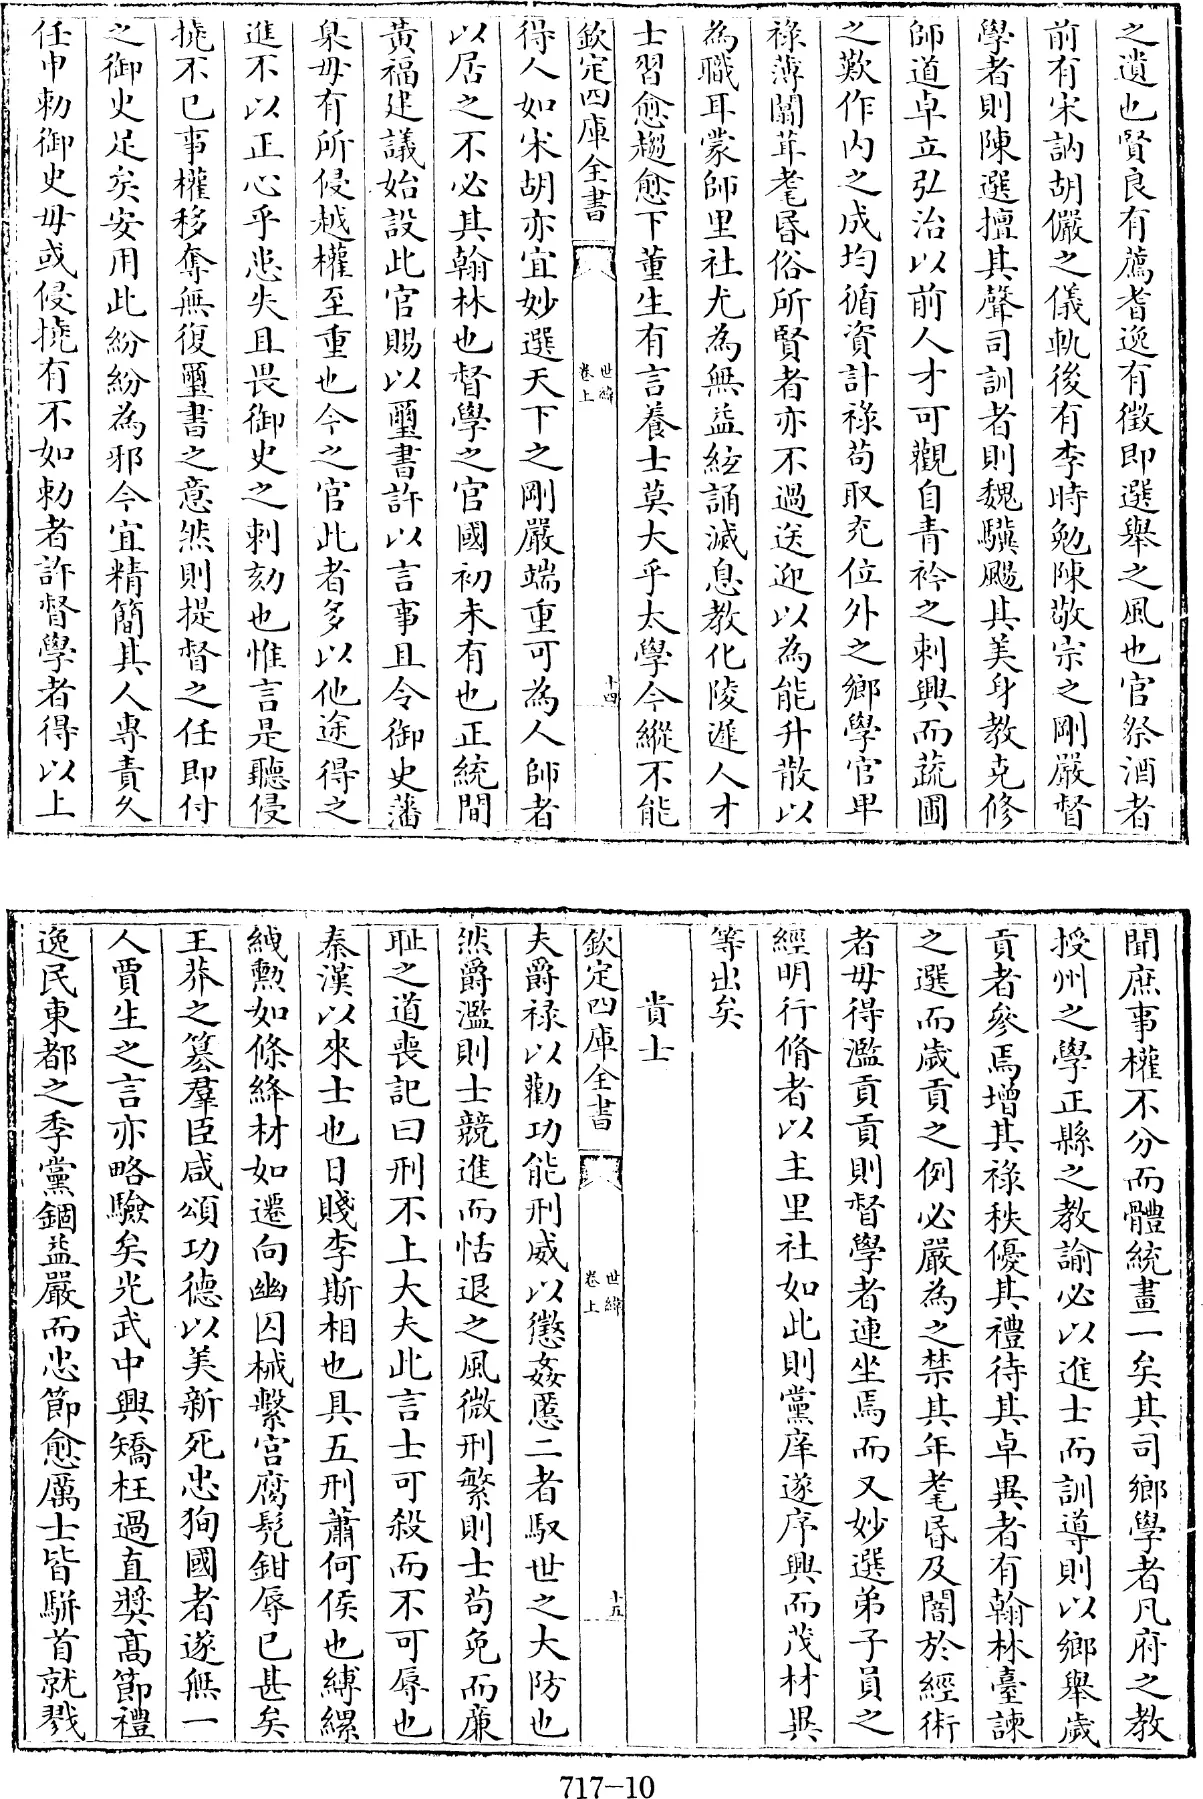 之遺也賢良有薦耆逸有徵即選舉之風也官祭酒者
前有宋訥胡儼之儀軌後有李時勉陳敬宗之剛嚴督
學者則陳選擅其聲司訓者則魏驥颺其美身教克修
師道卓立弘治以前人才可觀自青衿之刺興而蔬圃
之歎作内之成均循資計祿苟取充位外之鄉學官卑
祿薄闒茸耄昬俗所賢者亦不過送迎以為能升散以
為職耳蒙師里社尤為無益絃誦滅息教化陵遲人才
士習愈趨愈下董生有言養士莫大乎太學今縱不能
欽定四庫全書
世緯
卷上
十四
得人如宋胡亦宜妙選天下之剛嚴端重可為人師者
以居之不必其翰林也督學之官國初未有也正統間
黃福建議始設此官賜以璽書許以言事且令御史藩
臬毋有所侵越權至重也今之官此者多以他途得之
進不以正心乎患失且畏御史之刺劾也惟言是聽侵
撓不已事權移奪無復璽書之意然則提督之任即付
之御史足矣安用此紛紛為邪今宜精簡其人專責久
任申勅御史毋或侵撓有不如勅者許督學者得以上
聞庶事權不分而體統畫一矣其司鄉學者凡府之教
授州之學正縣之教諭必以進士而訓導則以鄉舉歲
貢者參焉增其祿秩優其禮待其卓異者有翰林臺諫
之選而歲貢之例必嚴為之禁其年耄昬及闇於經術
者毋得濫貢貢則督學者連坐焉而又妙選弟子員之
經明行脩者以主里社如此則黨庠遂序興而茂材異
等出矣
貴士
欽定四庫全書
世緯
卷上
十五
夫爵禄以勸功能刑威以懲姦慝二者馭世之大防也
然爵濫則士競進而恬退之風微刑繁則士苟免而廉
恥之道喪記曰刑不上大夫此言士可殺而不可辱也
秦漢以來士也日賤李斯相也具五刑蕭何侯也縛縲
絏勲如條絳材如遷向幽囚械繫宫腐髡鉗辱已甚矣
王莽之簒羣臣咸頌功德以美新死忠狥國者遂無一
人賈生之言亦略驗矣光武中興矯枉過直奬高節禮
逸民東都之季黨錮益嚴而忠節愈厲士皆駢首就戮
717-10